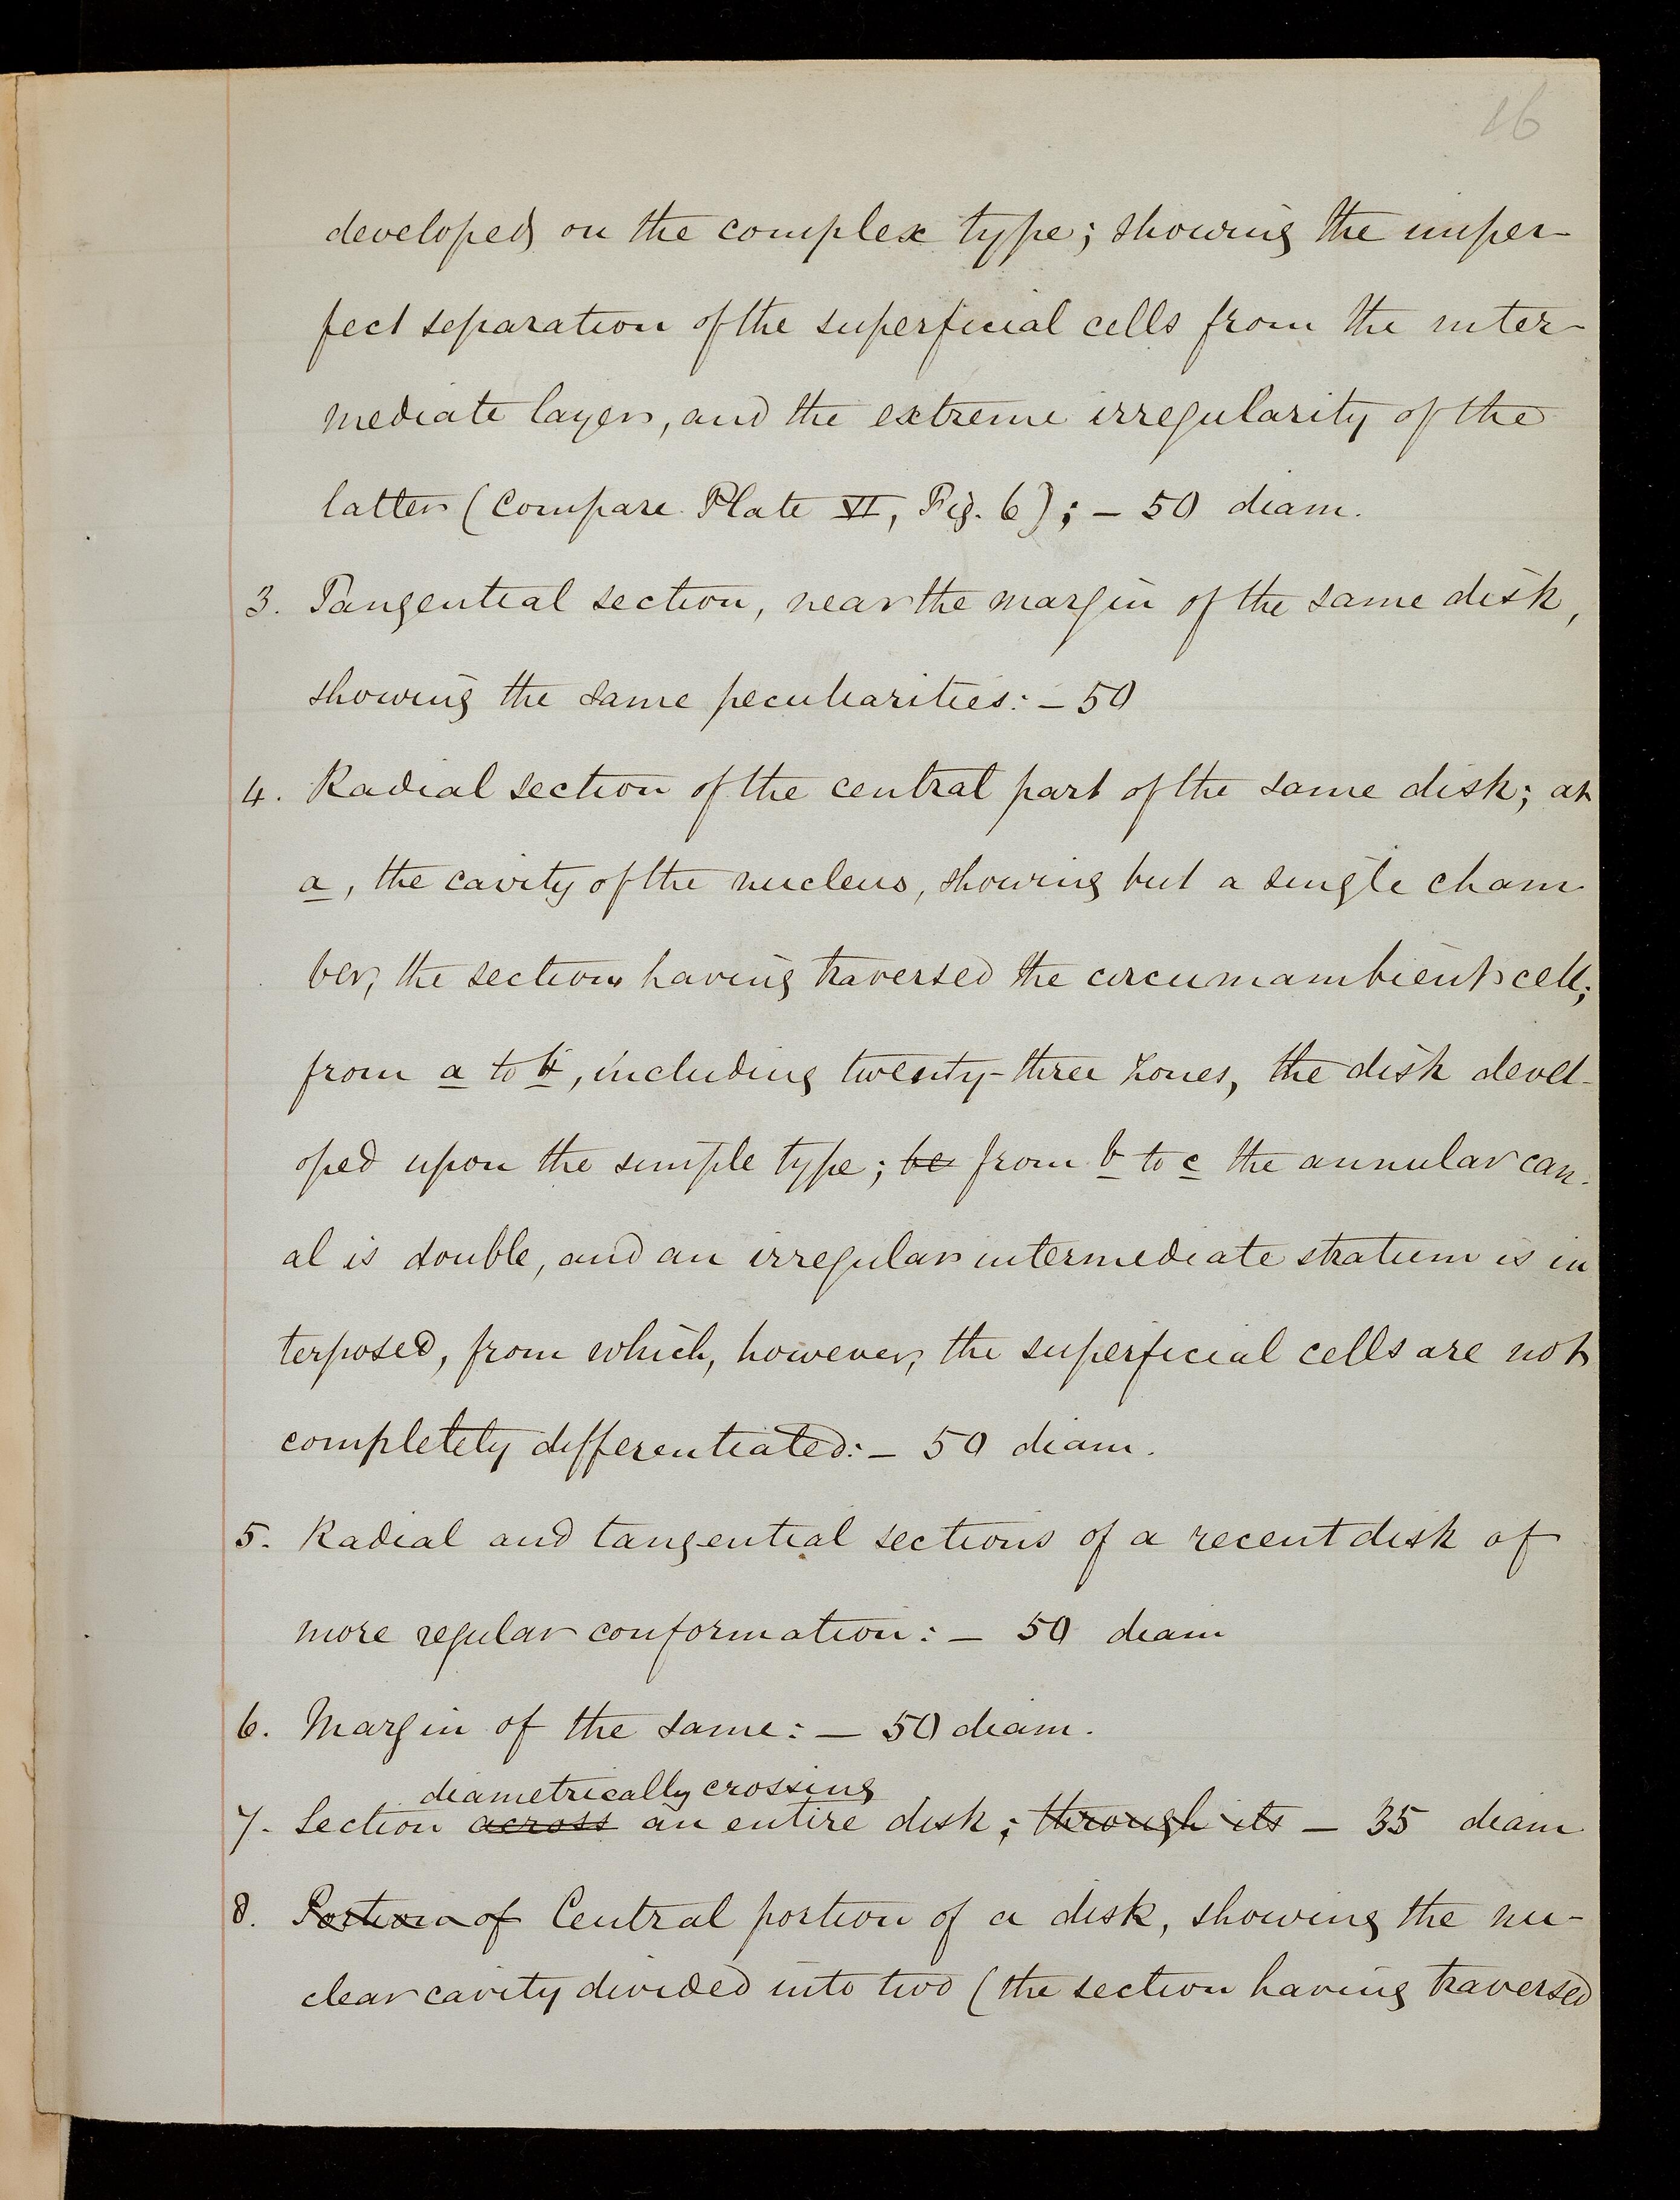 16
developed on the complex type; showing the imper-
fect separation of the superficial cells from the inter-
mediate layer, and the extreme irregularity of the
latter (Compare Plate VI, Fig. 6); – 50 diam.
3. Tangential section, near the margin of the same disk,
showing the same peculiarities: – 50
4. Radial section of the central part of the same disk; at
a, the cavity of the nucleus, showing but a single cham
ber, the section having traversed the circumambient cell;
from a to b, including twenty-three zones, the disk devel-
oped upon the simple type; be from b to c the annular can-
al is double, and an irregular intermediate stratum is in
terposed, from which, however, the superficial cells are not
completely differentiated: – 50 diam.
5. Radial and tangential sections of a recent disk of
more regular conformation: – 50 diam
6. Margin of the same: – 50 diam.
diametrically crossing
7. Section across an entire disk; through its – 35 diam
8. Portion of Central portion of a disk, showing the nu-
clear cavity divided into two (the section having traversed